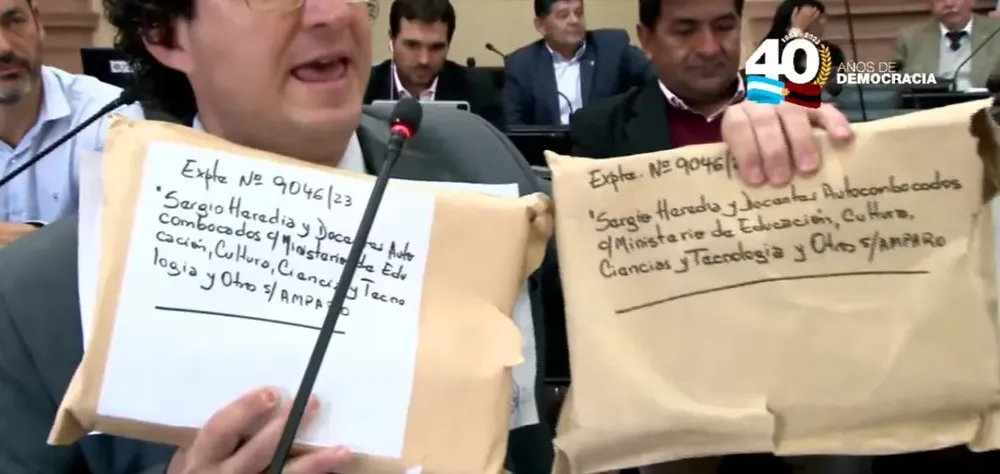 Expte Nº 9046/23
"Sergio Heredia y Docentes Auto
combocados c/Ministerio de Edu
cación, Cultura, Ciencias y Tecno
logia y Otro s/AMPARO
Expte. Nº 9046/23
"Sergio Heredia y Docentes Autocombocados
c/Ministerio de Educación, Cultura,
Ciencias y Tecnología y Otro s/AMPARO
1983 - 2023
40 AÑOS DE
DEMOCRACIA